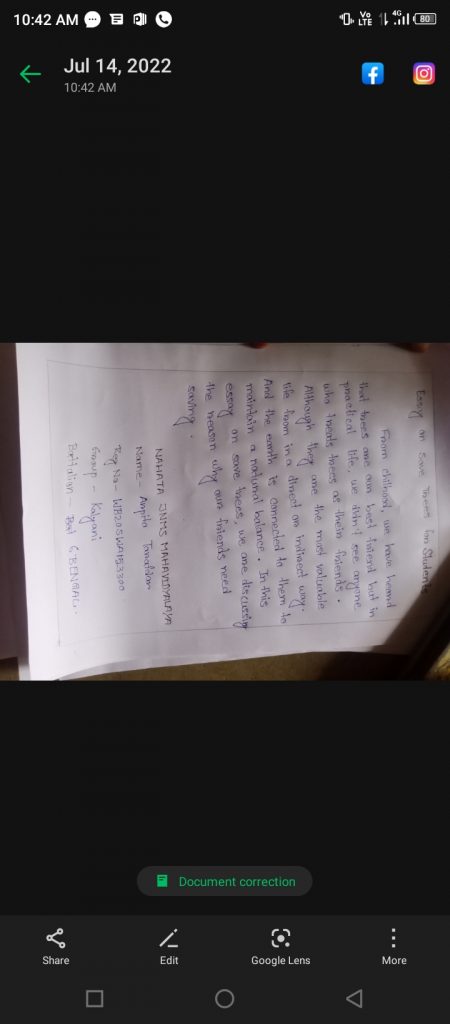 10:42 AM
Vo
LTE
4G
80
Jul 14, 2022
10:42 AM
Essay on save trees for Students
From chilhood, we have heard
that trees are our best friend but in
practical life, we didn't see anyone
who treats trees as their friends.
Although they are the most valuable
life from in a direct or indirect way.
And the earth is connected to them to
maintain a natural balance. In this
essay on save trees, we are discussing
the reason why our friends need
saving.
NAHATA JNMS MAHAVIDYALAYA
Name - Arpita
Reg No -
Group - Kalyani
Battalion - 6 BENGAL.
Document correction
Share
Edit
Google Lens
More